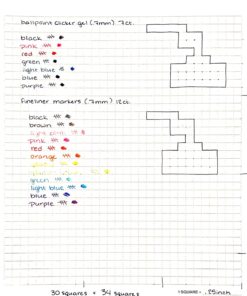 ballpoint clicker gel (.7mm) 7ct.
black
pink
red
green
light blue
blue
purple
fineliner markers (.7mm) 12ct.
black
brown
light pink
pink
red
orange
green
light blue
blue
purple
30 squares × 34 squares
1 SQUARE = .25 inch